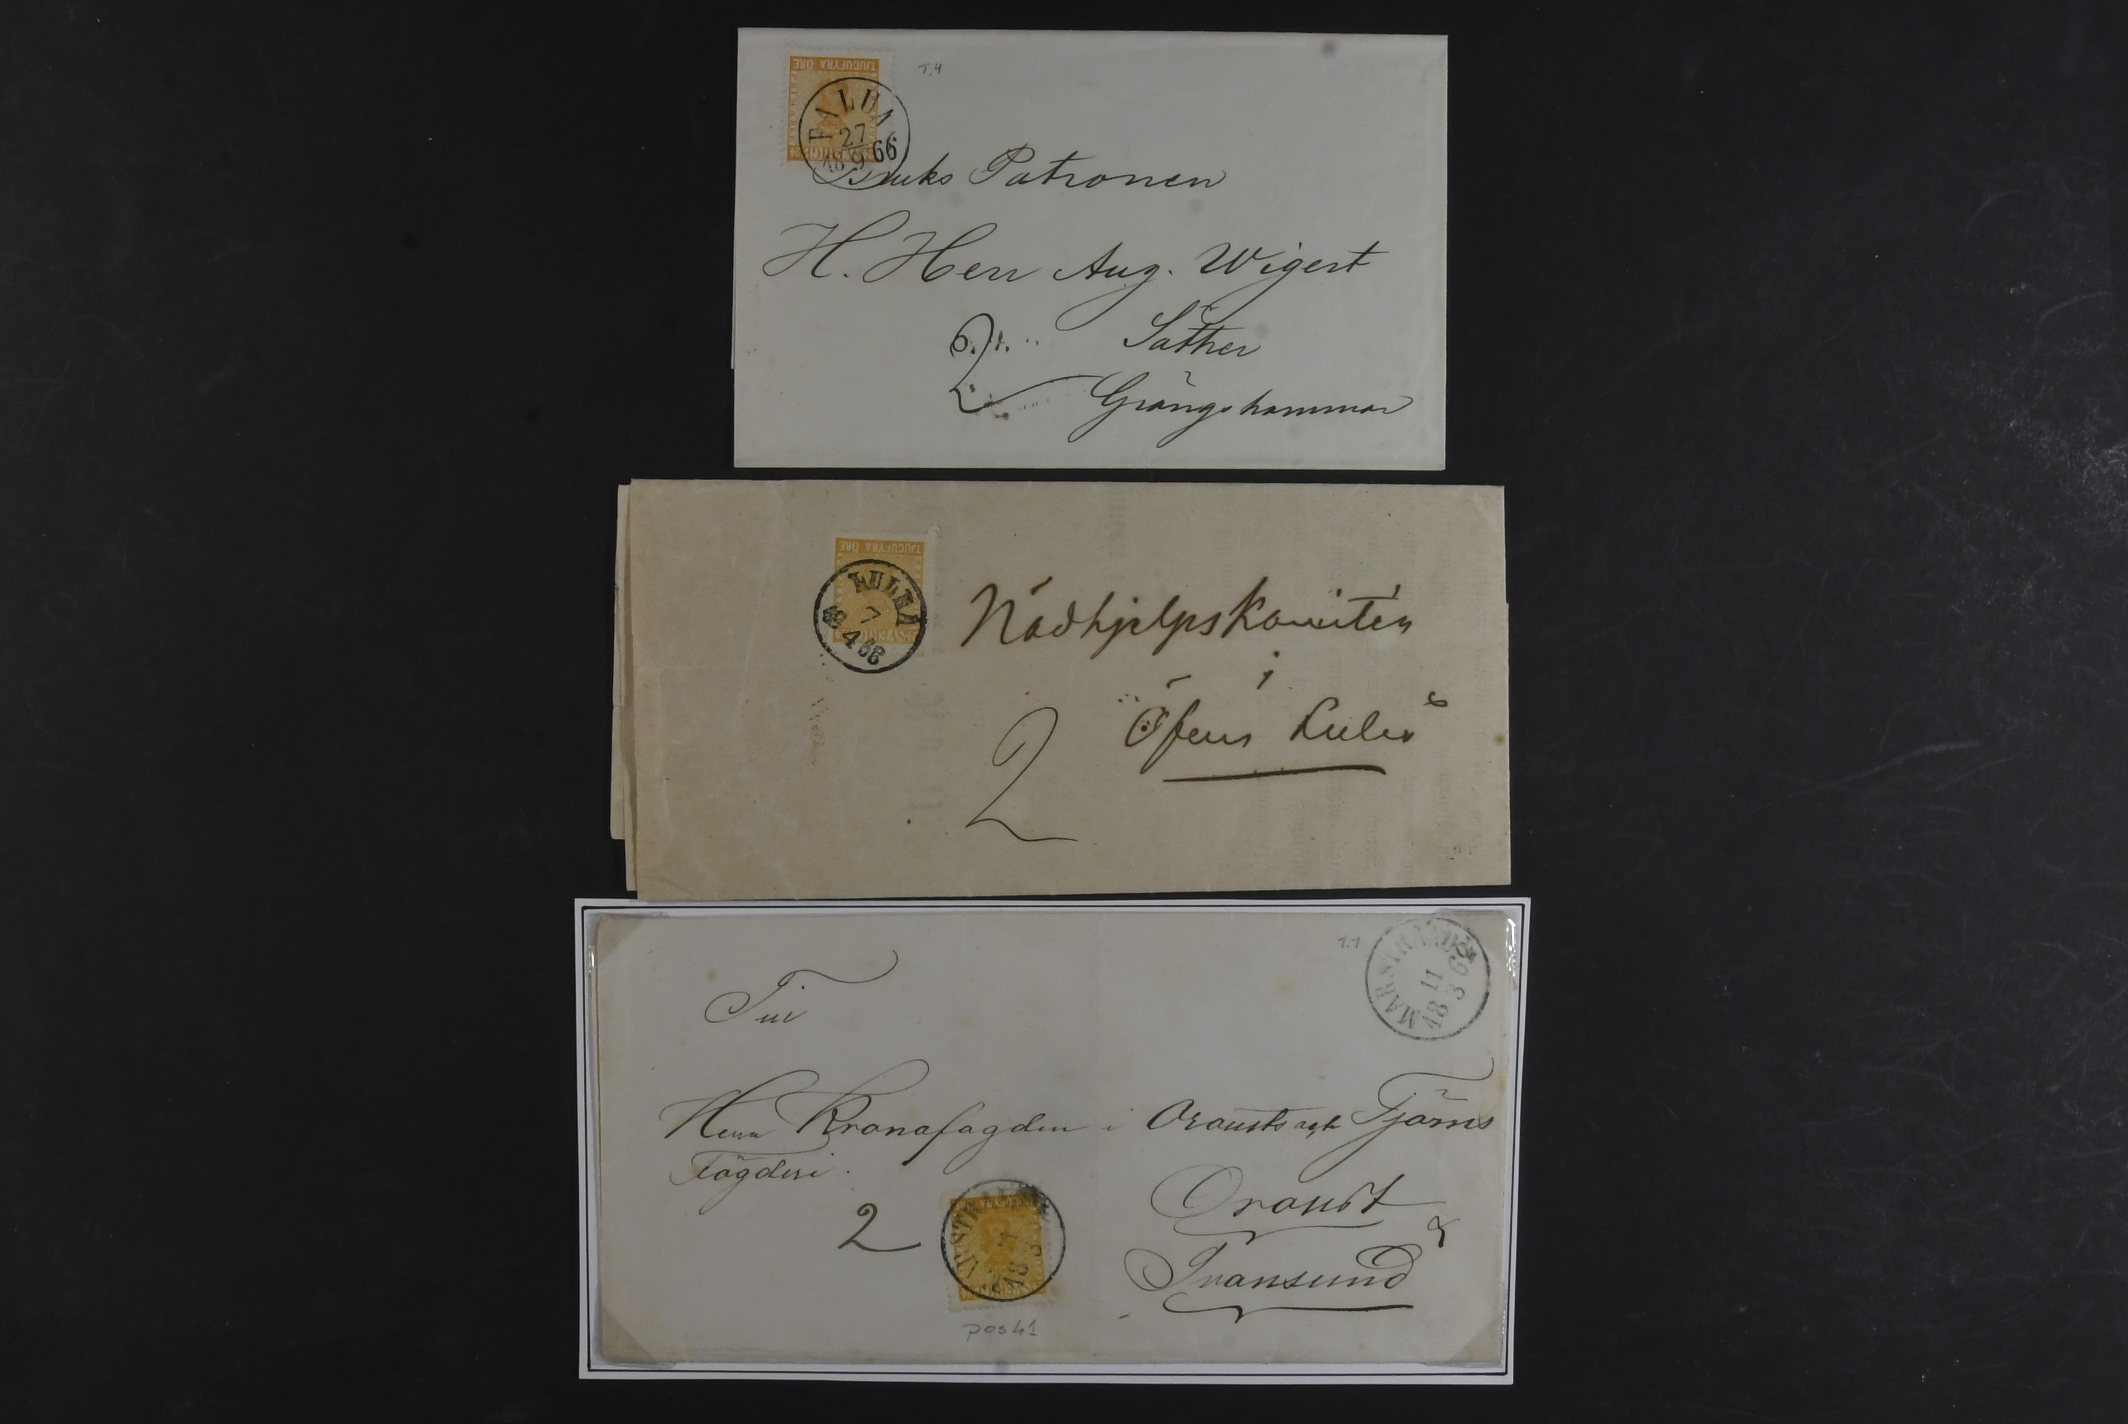 TJUGUFYRA ÖRE
T.4
FALUN
27
18 9 66
Bruks Patronen
H. Herr Aug. Wigert
Säther
2
Grängshammar
TJUGUFYRA ÖRE
SVERIGE
LULEÅ
7
4
Nödhjelpskomitén
i
Öfver Luleå
2
T.1
MARSTRAND
11
18 3 69
Till
Herr Kronofogden i Orousts och Tjörns
Fögderi.
2
Oroust
&
Svansund
MARSTRAND
pos 41